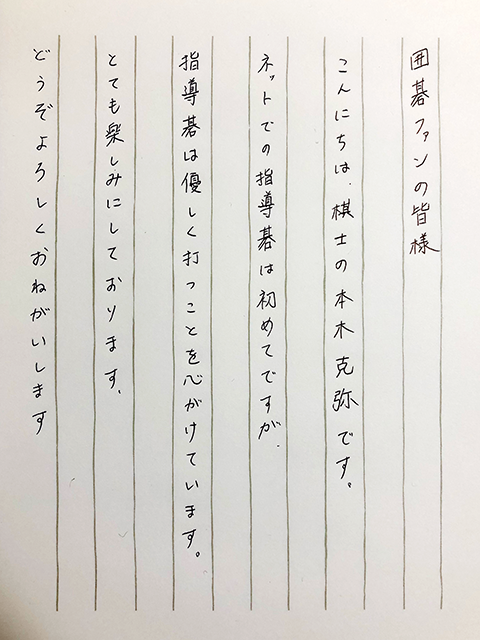 囲碁ファンの皆様
こんにちは、棋士の本木克弥です。
ネットでの指導碁は初めてですが、
指導碁は優しく打つことを心がけています。
とても楽しみにしております、
どうぞよろしくおねがいします